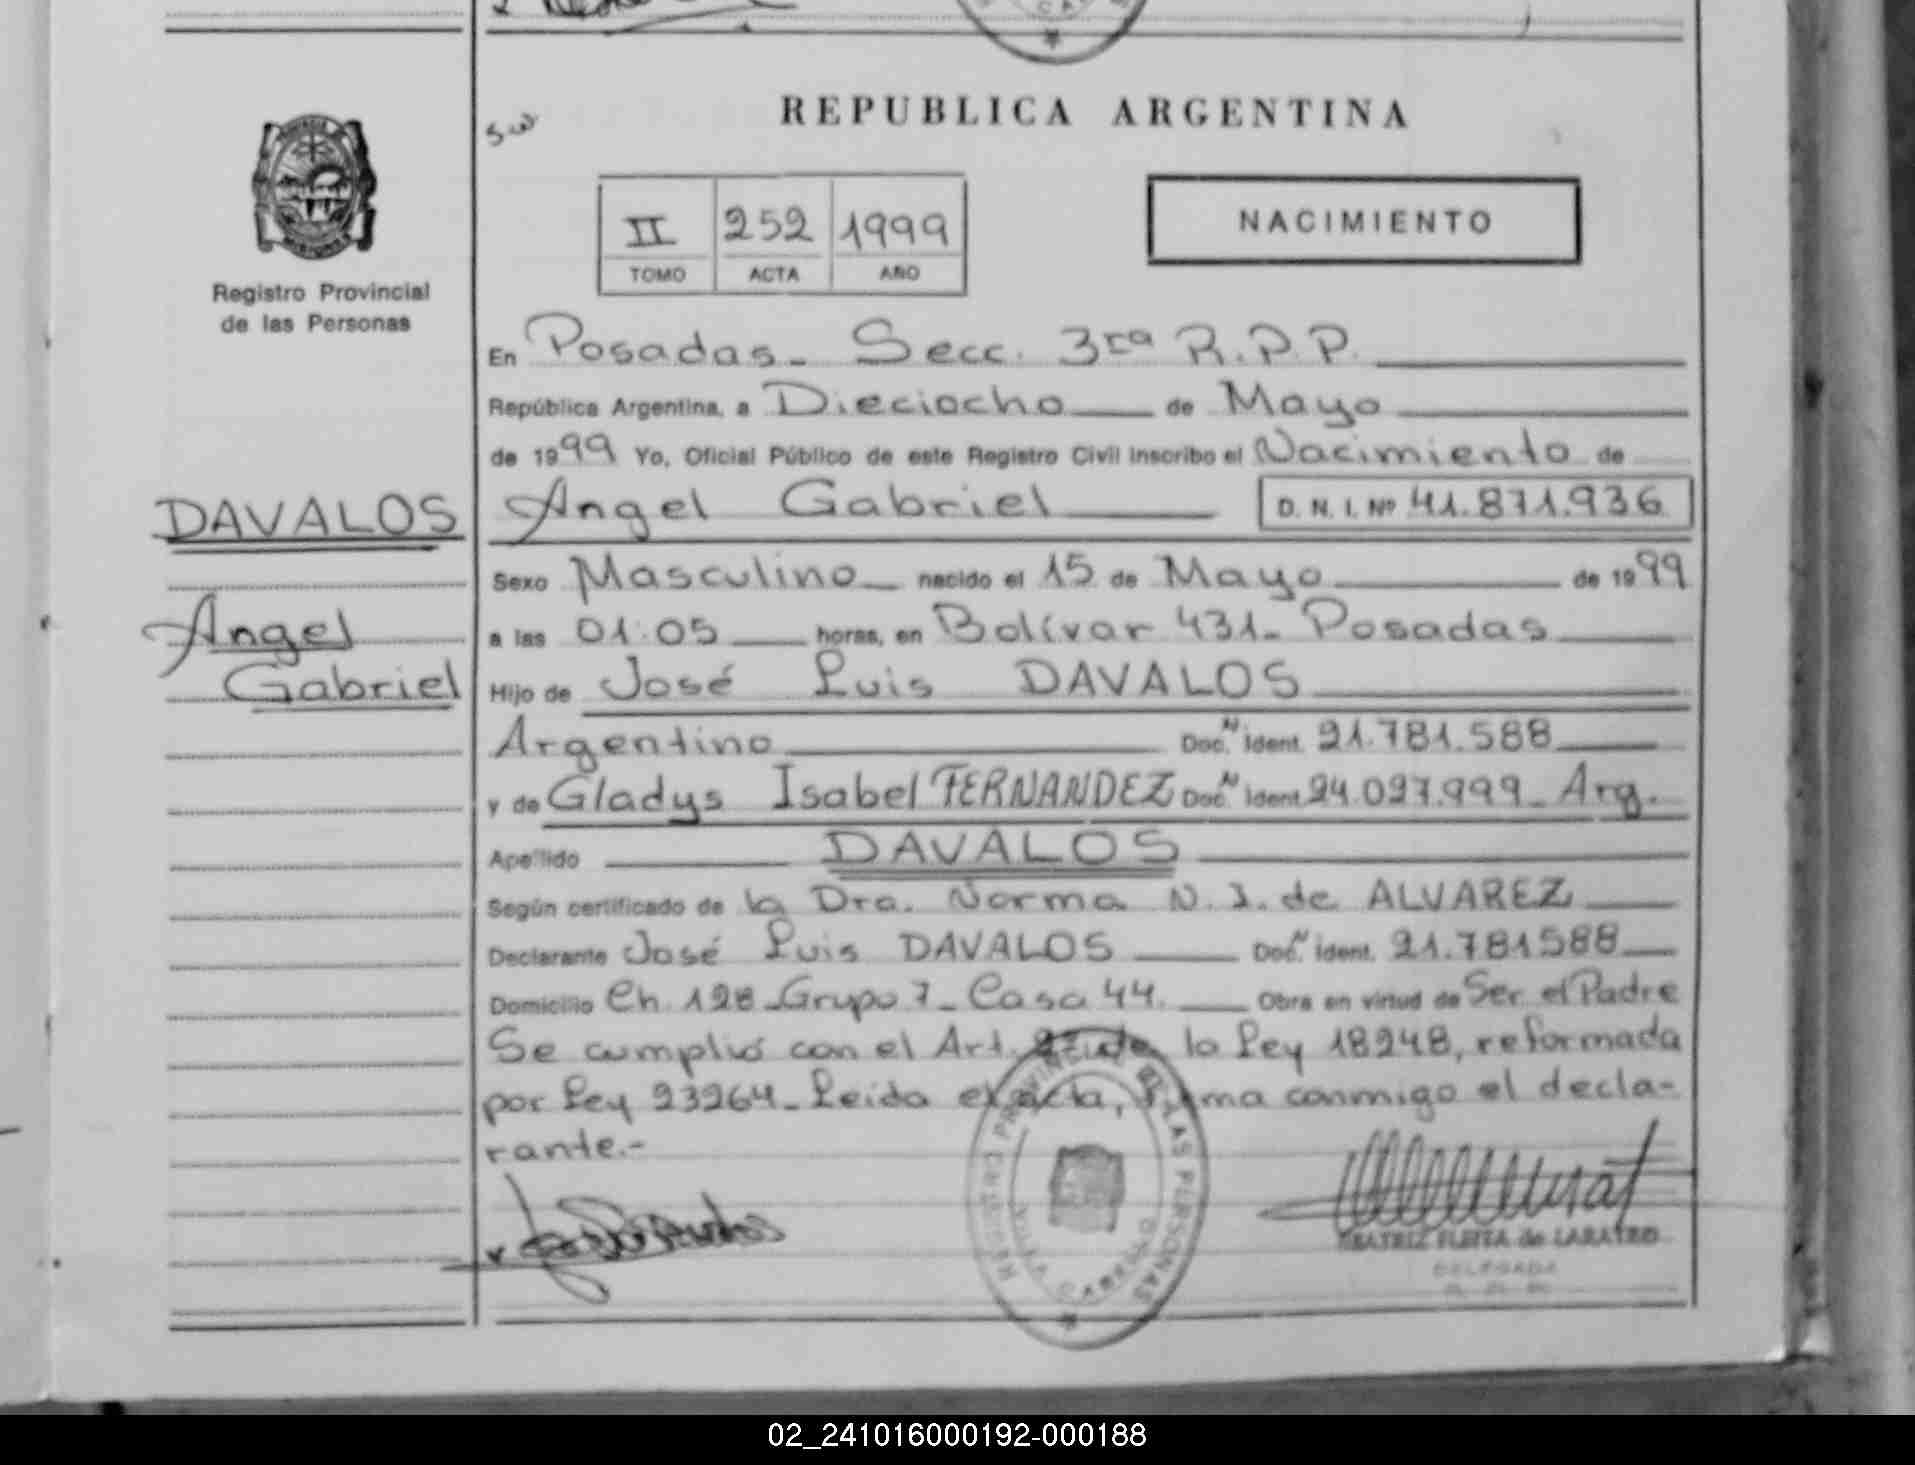 REPUBLICA ARGENTINA
Registro Provincial
de las Personas
II 252 1999
TOMO ACTA AÑO
NACIMIENTO
En Posadas_ Secc. 3ra R.P.P.
República Argentina, a Dieciocho de Mayo
de 1999 Yo, Oficial Público de este Registro Civil inscribo el Nacimiento de
DAVALOS
Angel Gabriel D. N. I. Nº 41.871.936
Sexo Masculino nacido el 15 de Mayo de 1999
Angel
Gabriel
a las 01:05 horas, en Bolívar 431_ Posadas
Hijo de José Luis DAVALOS
Argentino Doc. N ident. 21.781.588
y de Gladys Isabel FERNANDEZ Doc. N ident. 24.027.999_ Arg.
Apellido DAVALOS
Según certificado de la Dra. Norma N. I. de ALVAREZ
Declarante José Luis DAVALOS Doc. N ident. 21.781588
Domicilio Ch. 128_Grupo 7_ Casa 44. Obra en virtud de Ser el Padre
Se cumplió con el Art. la Ley 18248, reformada
por Ley 23264_ Leida el acta, firma conmigo el decla-
rante.-
REGISTRO PROVINCIAL DE LAS PERSONAS
VILLA CABELLO
BEATRIZ FLEITA de LABATED
DELEGADA
02_241016000192-000188